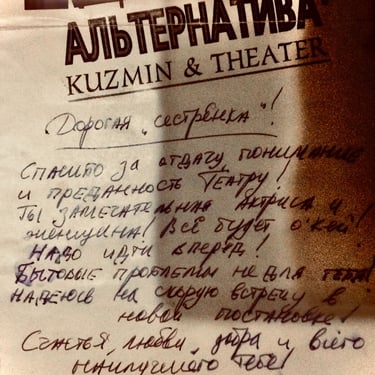 АЛЬТЕРНАТИВА
KUZMIN & THEATER
Дорогая „сестрёнка"!
Спасибо за отдачу, понимание
и преданность Театру!
Ты замечательная Актриса и
женщина! Всё будет о'кей!
Надо идти вперёд!
Бытовые проблемы не для тебя!
Надеюсь на скорую встречу в
новой постановке!
Счастья, любви, добра и всего
наилучшего тебе!